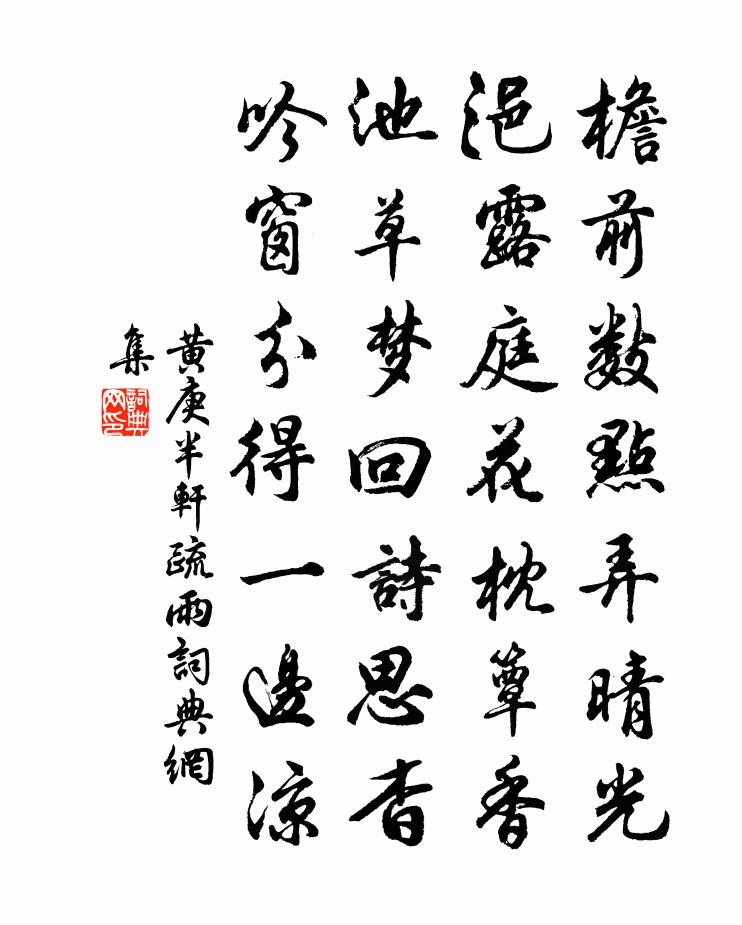 檐前數點弄晴光
浥露庭花枕簟香
池草梦回詩思杳
吟窗分得一邊涼
黄庚半軒疏雨詞典網
集
詞典
网印